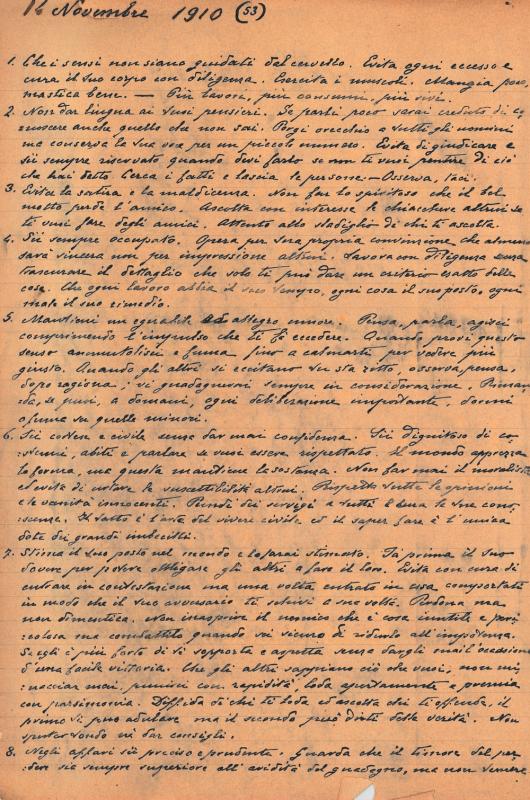 16 Novembre 1910 (53)
1. Che i sensi non siano guidati del cervello. Evita ogni eccesso e
cura il tuo corpo con diligenza. Esercita i muscoli. Mangia poco,
mastica bene. — Più lavori, più consumi, più vivi.
2. Non dar lingua ai tuoi pensieri. Se parli poco sarai creduto di co-
noscere anche quello che non sai. Porgi orecchio a tutti gli uomini
ma conserva la tua voce per un piccolo numero. Evita di giudicare e
sii sempre riservato quando devi farlo se non ti vuoi pentire di ciò
che hai detto. Cerca i fatti e lascia le persone — Osserva, taci.
3. Evita la satira e la maldicenza. Non far lo spiritoso che il bel
motto perde l'amico. Ascolta con interesse le chiacchere altrui se
te vuoi fare degli amici. Attento allo sbadiglio di chi ti ascolta.
4. Sii sempre occupato. Opera per tua propria convinzione che almeno
sarà sincera non per impressione altrui. Lavora con diligenza senza
trascurare il dettaglio che solo te può dare un criterio esatto delle
cose. Che ogni lavoro abbia il suo tempo, ogni cosa il suo posto, ogni
male il suo rimedio.
5. Mantieni un eguale ed allegro umore. Pensa, parla, agisci
comprimendo l'impulso che ti fa eccedere. Quando provi questo
senso ammutolisci e fuma fino a calmarti per vedere più
giusto. Quando gli altri si eccitano tu sta zitto, osserva, pensa,
dopo ragiona; vi guadagnerai sempre in considerazione. Riman-
da, se puoi, a domani, ogni deliberazione importante, dormi
o fuma su quelle minori.
6. Sii cortese e civile senza dar mai confidenza. Sii dignitoso di co-
stumi, abiti e parlare se vuoi essere rispettato. Il mondo apprezza
la forma, ma questa mantiene la sostanza. Non far mai il moralista
ed evita di urtare le suscettibilità altrui. Rispetta tutte le opinioni
e le vanità innocenti. Rendi dei servigi a tutti e dura le tue cono-
scenze. Il tatto è l'arte del vivere civile ed il saper fare è l'unica
dote dei grandi imbecilli.
7. Stima il tuo posto nel mondo e lo farai stimato. Fa prima il tuo
dovere per potere obbligare gli altri a fare il loro. Evita con cura di
entrare in contestazione ma una volta entrato in essa comportati
in modo che il tuo avversario te schivi a sua volta. Perdona ma
non dimentica. Non inasprire il nemico che è cosa inutile e peri-
colosa ma combattilo quando sei sicuro di ridurlo all'impotenza.
Se egli è più forte di te sopporta e aspetta senza dargli mai l'occasione
d'una facile vittoria. Che gli altri sappiano ciò che vuoi, non mi-
nacciar mai. punisci con rapidità, loda apertamente e premia
con parsimonia. Diffida di chi te loda ed ascolta chi te offende, il
primo ti può adulare ma il secondo può dirti delle verità. Non
sputar tondo nè dar consigli.
8. Negli affari sii preciso e prudente. Guarda che il timore del per-
dere sia sempre superiore all'avidità del guadagno, ma non temere